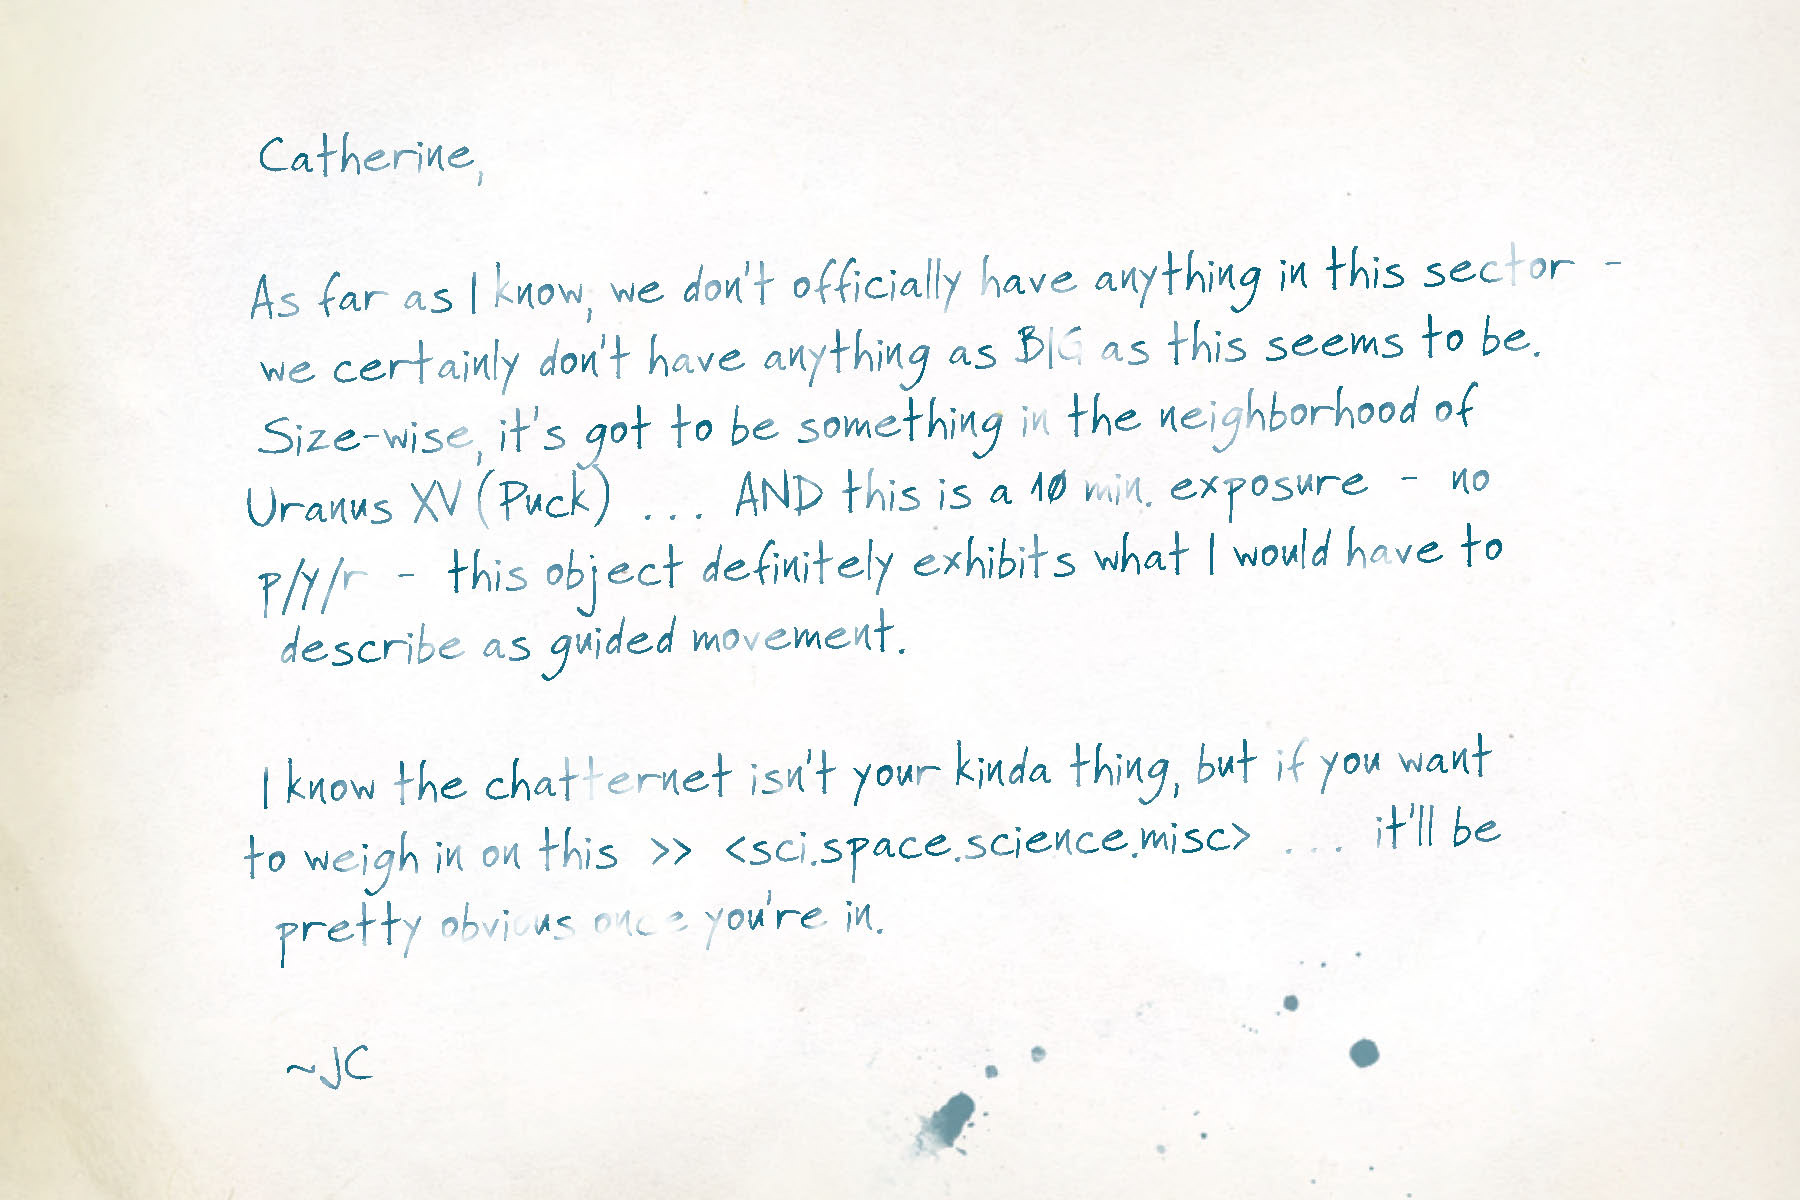 Catherine,
As far as I know, we don't officially have anything in this sector -
we certainly don't have anything as BIG as this seems to be.
Size-wise, it's got to be something in the neighborhood of
Uranus XV (Puck) ... AND this is a 10 min. exposure - no
p/y/r - this object definitely exhibits what I would have to
describe as guided movement.
I know the chatternet isn't your kinda thing, but if you want
to weigh in on this >> <sci.space.science.misc> ... it'll be
pretty obvious once you're in.
~JC